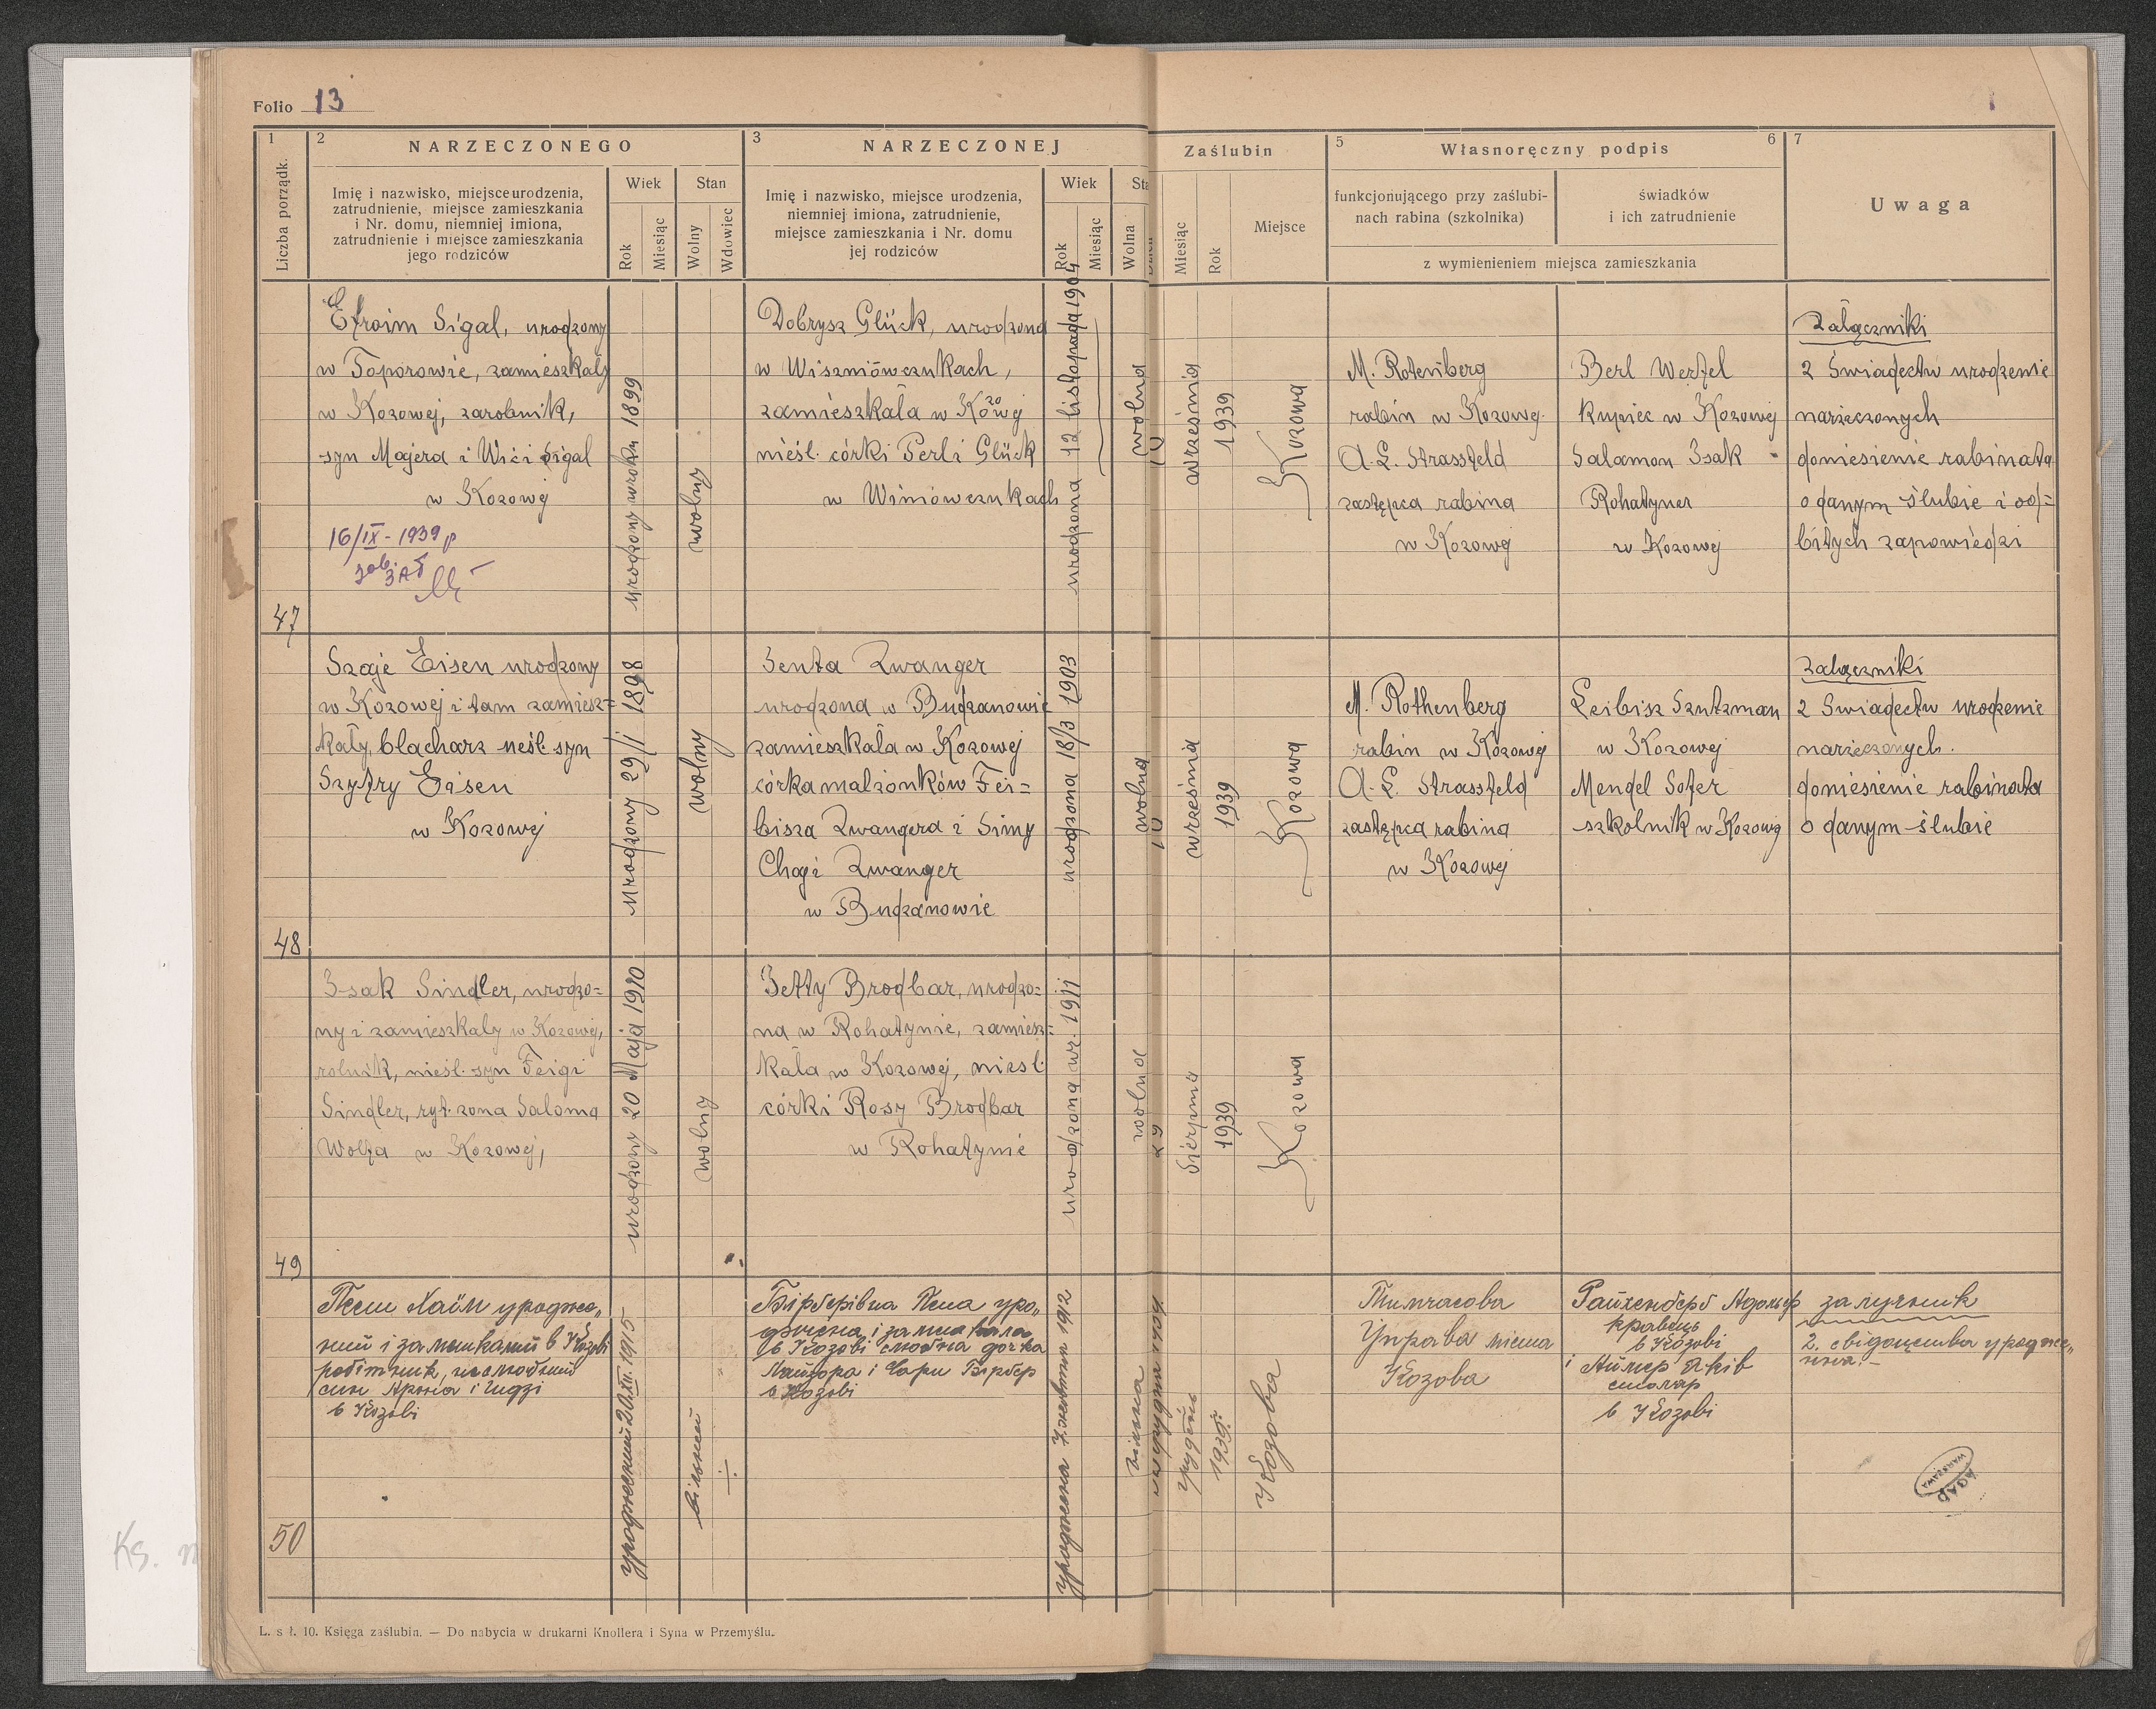 Folio 13
1
2
NARZECZONEGO
3
NARZECZONEJ
Zaślubin
5
Własnoręczny podpis
6
7
Liczba porządk.
Imię i nazwisko, miejsce urodzenia,
zatrudnienie, miejsce zamieszkania
i Nr. domu, niemniej imiona,
zatrudnienie i miejsce zamieszkania
jego rodziców
Wiek
Rok
Miesiąc
Stan
Wolny
Wdowiec
Imię i nazwisko, miejsce urodzenia,
niemniej imiona, zatrudnienie,
miejsce zamieszkania i Nr. domu
jej rodziców
Wiek
Rok
Miesiąc
Wolna
Miesiąc
Rok
Miejsce
funkcjonującego przy zaślubi-
nach rabina (szkolnika)
świadków
i ich zatrudnienie
z wymienieniem miejsca zamieszkania
Uwaga
47
Efroim Sigal, urodzony
w Toporowie, zamieszkały
w Kozowej, zarobnik,
syn Majera i Wici Sigal
w Kozowej
16/IX - 1939 р
urodzony w roku 1899
wolny
Dobrysz Glück, urodzona
w Wiszniówczukach,
zamieszkała w Kozowej
nieśl. córki Perli Glück
w Winiówczukach
urodzona 12 listopada 1904
wolna
10
września
1939
Kozowa
M. Rotenberg
rabin w Kozowej.
A. L. Strassfeld
zastępca rabina
w Kozowej
Berl Werfel
kupiec w Kozowej
Salamon Isak
Rohatyner
w Kozowej
Załączniki
2 Świadectw urodzenie
narzeczonych
doniesienie rabinata
o danym ślubie i od=
bitych zapowiedzi
48
Szaje Eisen urodzony
w Kozowej i tam zamiesz=
kały, blacharz nieśl. syn
Szyfry Eisen
w Kozowej
Urodzony 29/1 1898
wolny
Jenta Zwanger
urodzona w Budzanowie
zamieszkała w Kozowej
córka małżonków Fei=
bisza Zwangera i Simy
Chaji Zwanger
w Budzanowie
urodzona 18/3 1903
wolna
10
września
1939
Kozowa
M. Rothenberg
rabin w Kozowej
A. L. Strassfeld
zastępca rabina
w Kozowej
Leibisz Szntzman
w Kozowej
Mendel Sofer
szkolnik w Kozowej
Załączniki
2 Swiadectw urodzenie
narzeczonych.
doniesienie rabinata
o danym ślubie
49
Isak Sindler, urodzo=
ny i zamieszkały w Kozowej,
rolnik, nieśl. syn Feigi
Sindler, ryt. żona Saloma
Wolfa w Kozowej,
urodzony 20 Maja 1910
wolny
Jetty Brodbar, urodzo=
na w Rohatynie, zamiesz=
kała w Kozowej, nieśl.
córki Rosy Brodbar
w Rohatynie
urodzona w r. 1911
wolna
29
Sierpnia
1939
Kozowa
50
Песи Хаїм уродже„
ний і замешканий в Козові
робітник, несплюбний
син Арона і Гидзі
в Козові
уроджений 20.XII.1915
вільний
Бірберівна Пепа уро„
джена і замешкала
в Козові слюбна дочка
Майора і Сари Бірбер
в Козові
уроджена 7. жовтня 1912
вільна
грудень
1939.
Козова
Тимчасова
Управа міста
Козова
Райхенберг Адольф
кравець
в Козові
і Аймер Яків
столяр
в Козові
залучник
2. свідоцства уродже„
ння. –
AGAD
WARSZAWA
L. s ł. 10. Księga zaślubin. — Do nabycia w drukarni Knollera i Syna w Przemyślu.
Ks.